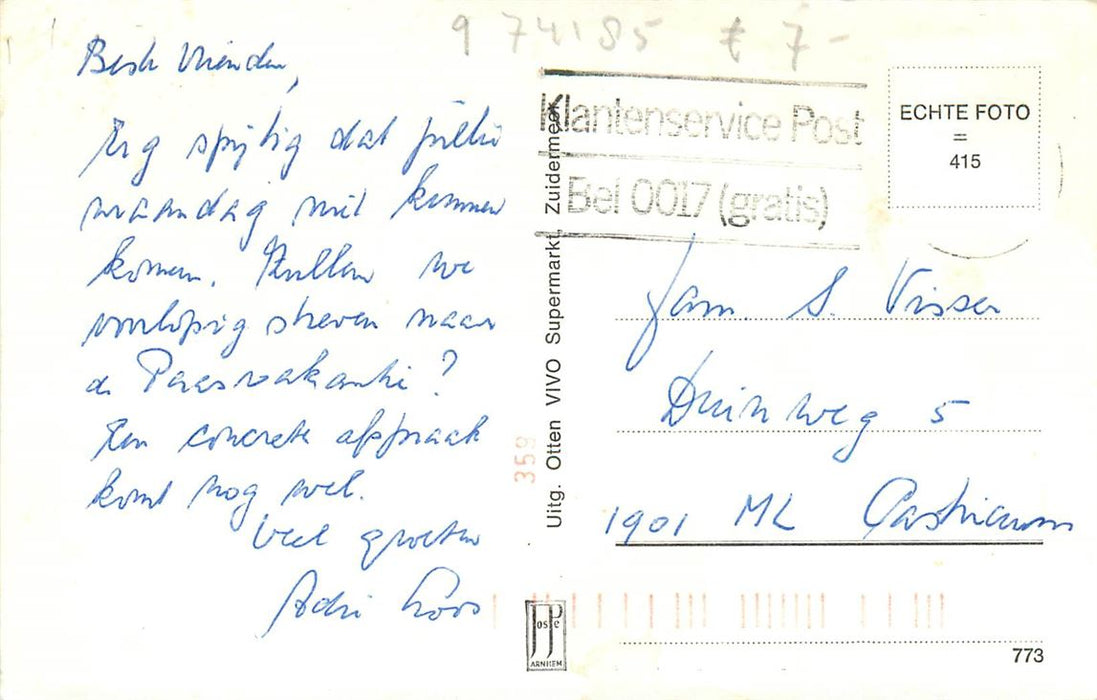 9 74185 € 7-
Beste Vrienden,
Erg spijtig dat jullie
maandag niet kunnen
komen. Zullen we
voorlopig streven naar
de Paasvakantie?
Een concrete afspraak
komt nog wel.
Veel groeten
Adri Koos
Klantenservice Post
Bel 0017 (gratis)
ECHTE FOTO
=
415
Fam. S. Visser
Duinweg 5
1901 ML Castricum
Uitg. Otten VIVO Supermarkt, Zuidermeer
359
JosPe
ARNHEM
773